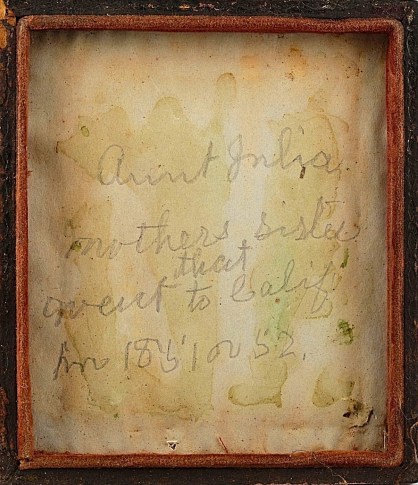 Aunt Julia
mothers sister
that
went to Calif
in 1851 or 52.